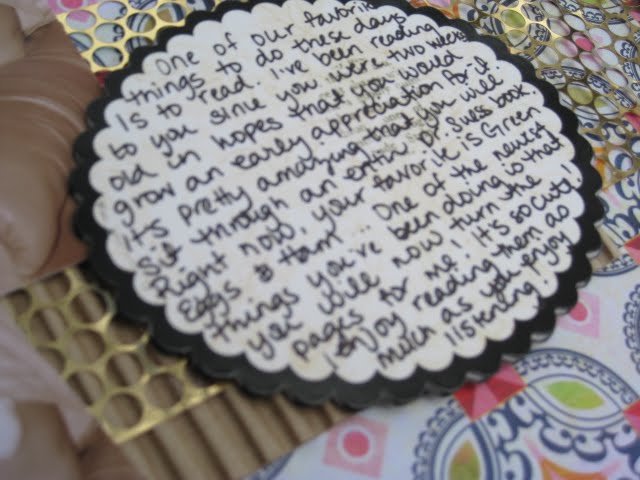 One of our favorite
things to do these days
is to read. I've been reading
to you since you were two weeks
old in hopes that you would
grow an early appreciation for it.
It's pretty amazing that you will
sit through an entire Dr. Suess book.
Right now, your favorite is Green
Eggs & Ham... One of the newest
things you've been doing is that
you will now turn the
pages for me! It's so cute!
I enjoy reading them as
much as you enjoy
listening!